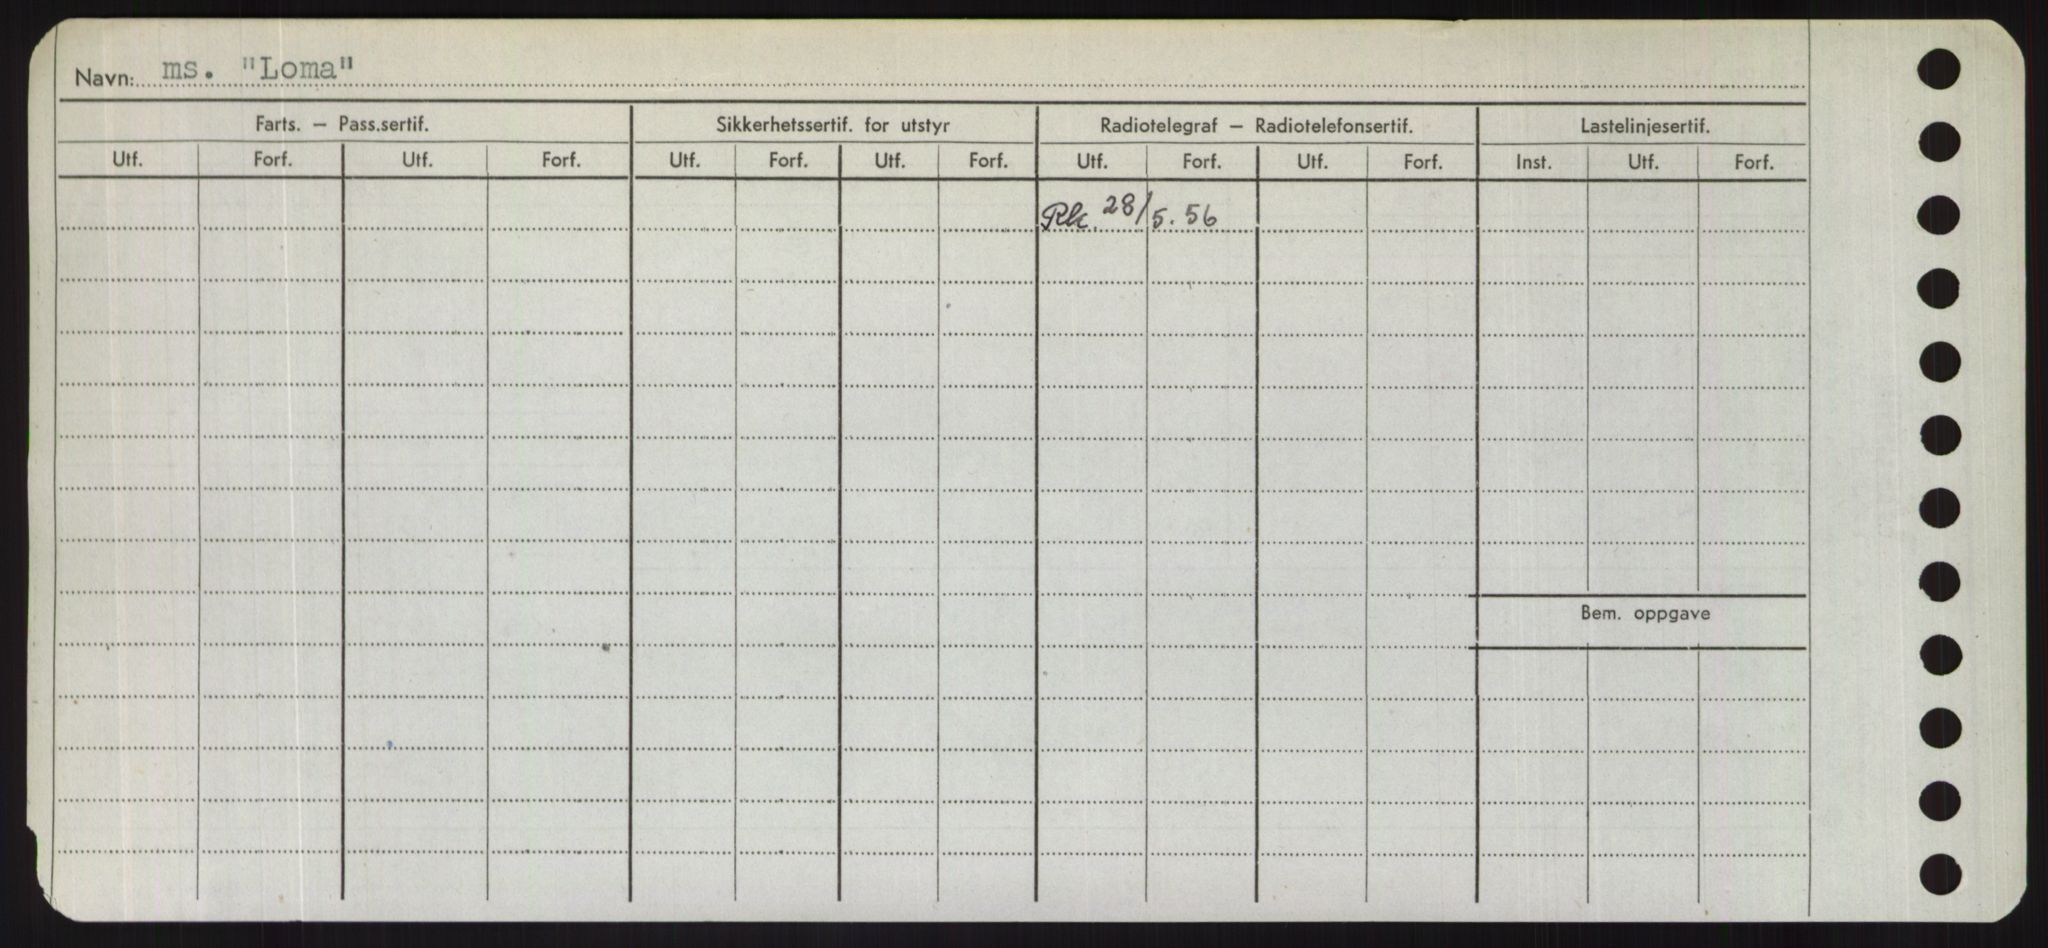 Navn: ms. "Loma"
Farts. — Pass.sertif. Sikkerhetssertif. for utstyr Radiotelegraf — Radiotelefonsertif. Lastelinjesertif.
Utf. Forf. Utf. Forf. Utf. Forf. Utf. Forf. Utf. Forf. Utf. Forf. Inst. Utf. Forf.
Rk. 28/5.56
Bem. oppgave